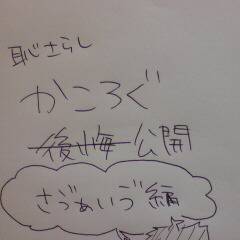 恥さらし
かころぐ
後悔公開
さづめいづ編